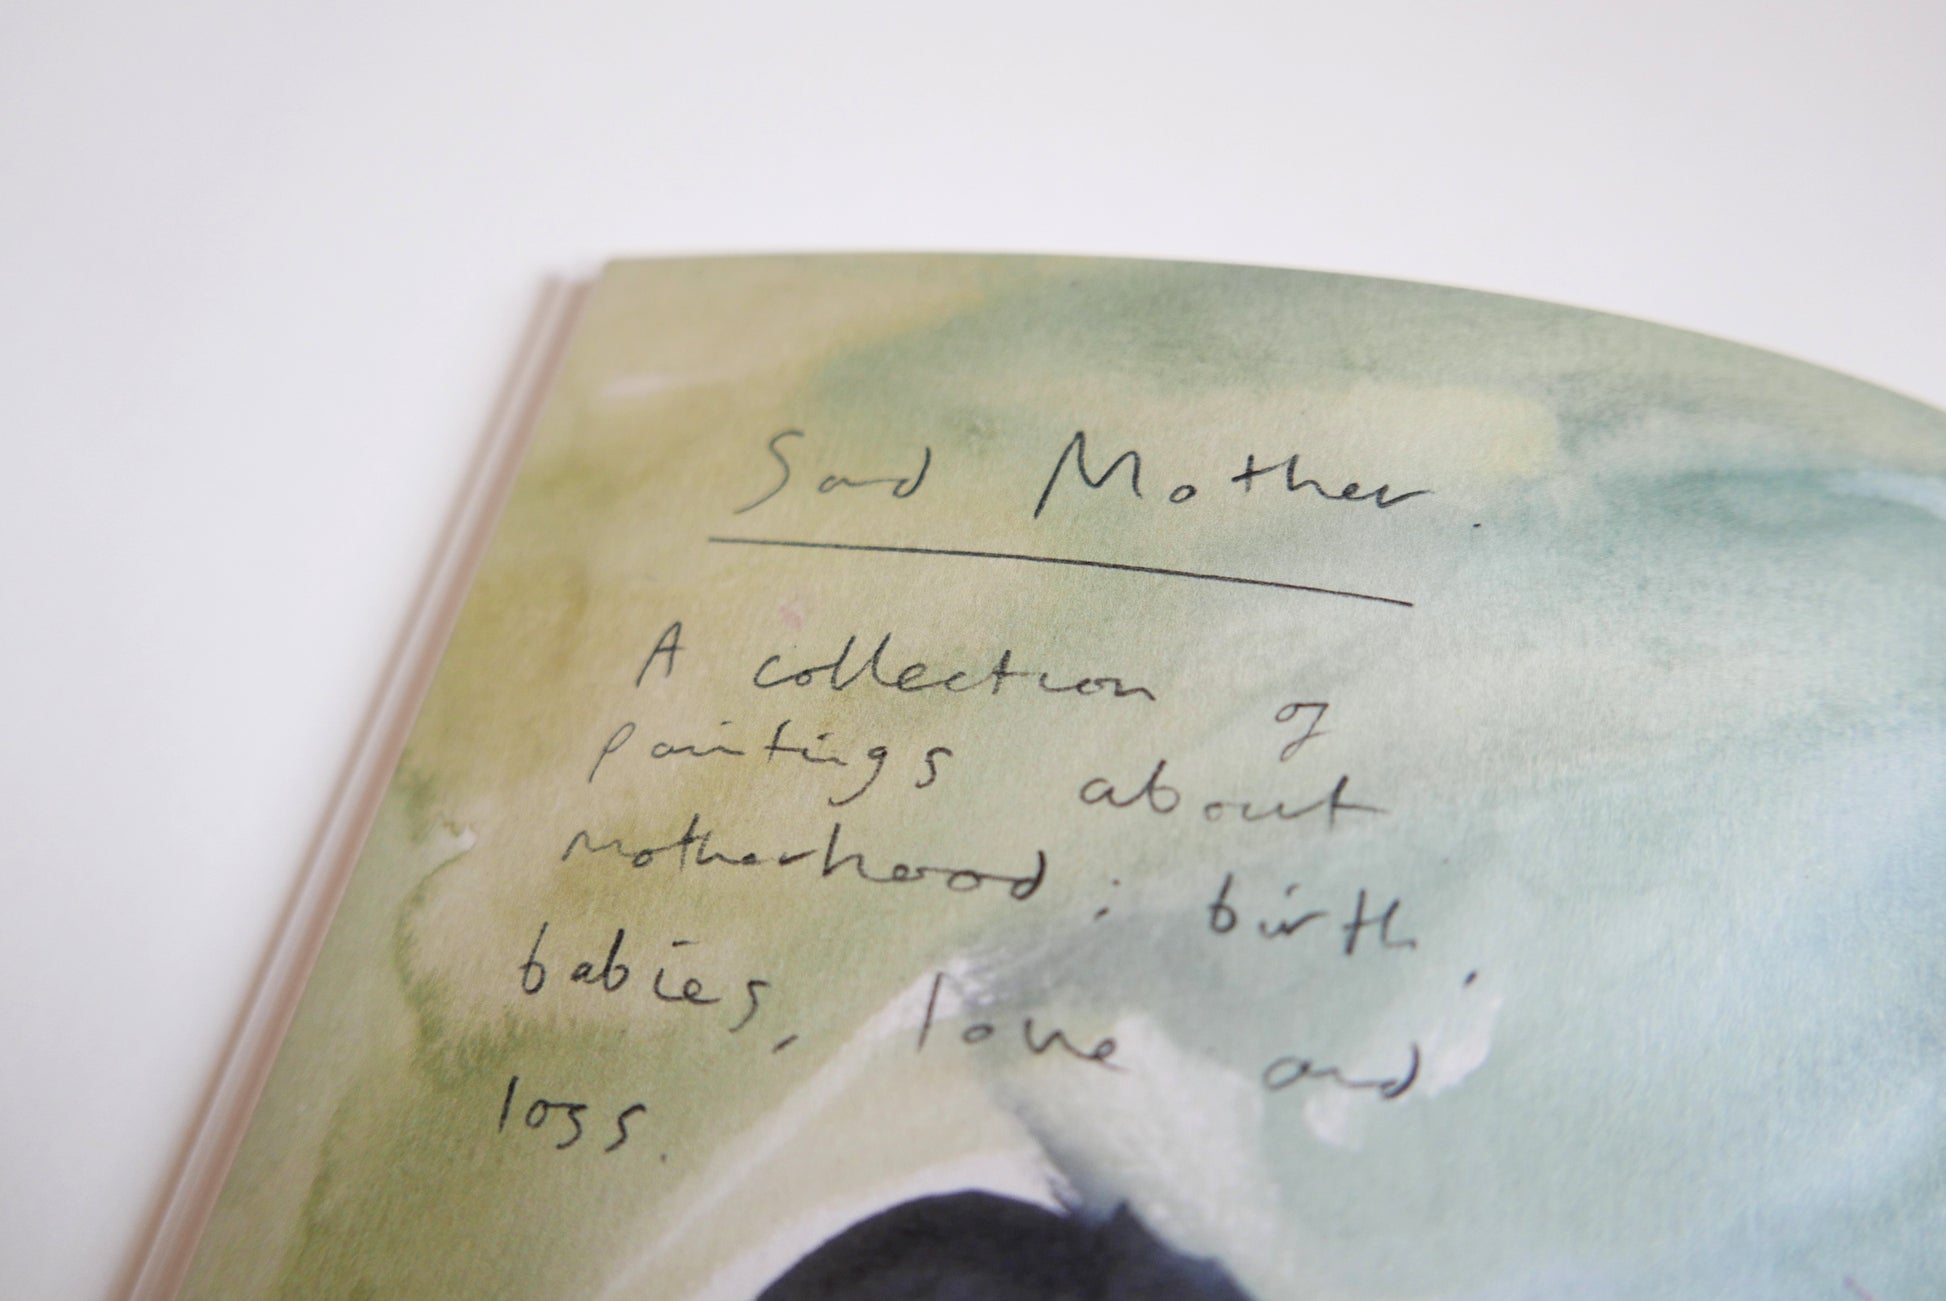 Sad Mother.
A collection of
paintings about
motherhood; birth,
babies, love and
loss.